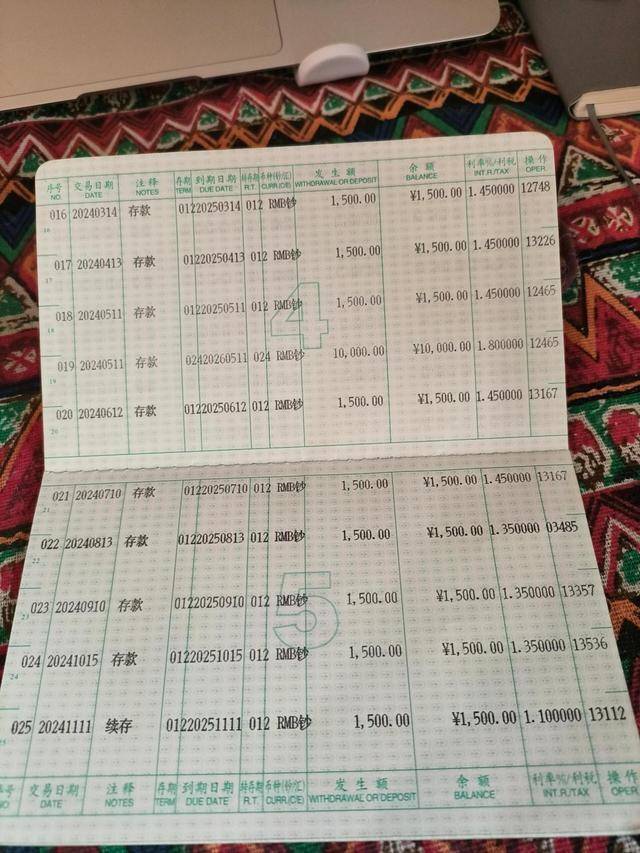 序号 交易日期 注释 存期 到期日期 转存期 币种(钞/汇) 发生额 余额 利率%/利税 操作
NO. DATE NOTES TERM DUE DATE R.T. CURR.(C/E) WITHDRAWAL OR DEPOSIT BALANCE INT.R./TAX OPER.
016 20240314 存款 01220250314 012 RMB钞 1,500.00 ¥1,500.00 1.450000 12748
16
017 20240413 存款 01220250413 012 RMB钞 1,500.00 ¥1,500.00 1.450000 13226
17
018 20240511 存款 01220250511 012 RMB钞 1,500.00 ¥1,500.00 1.450000 12465
18
4
019 20240511 存款 02420260511 024 RMB钞 10,000.00 ¥10,000.00 1.800000 12465
19
020 20240612 存款 01220250612 012 RMB钞 1,500.00 ¥1,500.00 1.450000 13167
20
021 20240710 存款 01220250710 012 RMB钞 1,500.00 ¥1,500.00 1.450000 13167
21
022 20240813 存款 01220250813 012 RMB钞 1,500.00 ¥1,500.00 1.350000 03485
22
5
023 20240910 存款 01220250910 012 RMB钞 1,500.00 ¥1,500.00 1.350000 13357
23
024 20241015 存款 01220251015 012 RMB钞 1,500.00 ¥1,500.00 1.350000 13536
24
025 20241111 续存 01220251111 012 RMB钞 1,500.00 ¥1,500.00 1.100000 13112
25
序号 交易日期 注释 存期 到期日期 转存期 币种(钞/汇) 发生额 余额 利率%/利税 操作
NO. DATE NOTES TERM DUE DATE R.T. CURR.(C/E) WITHDRAWAL OR DEPOSIT BALANCE INT.R./TAX OPER.